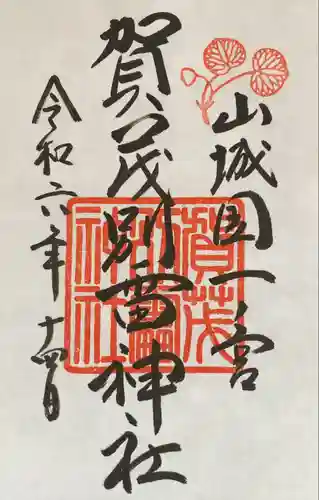 山城國一之宮
賀茂別雷神社
令和六年十一月四日
賀茂別雷神社